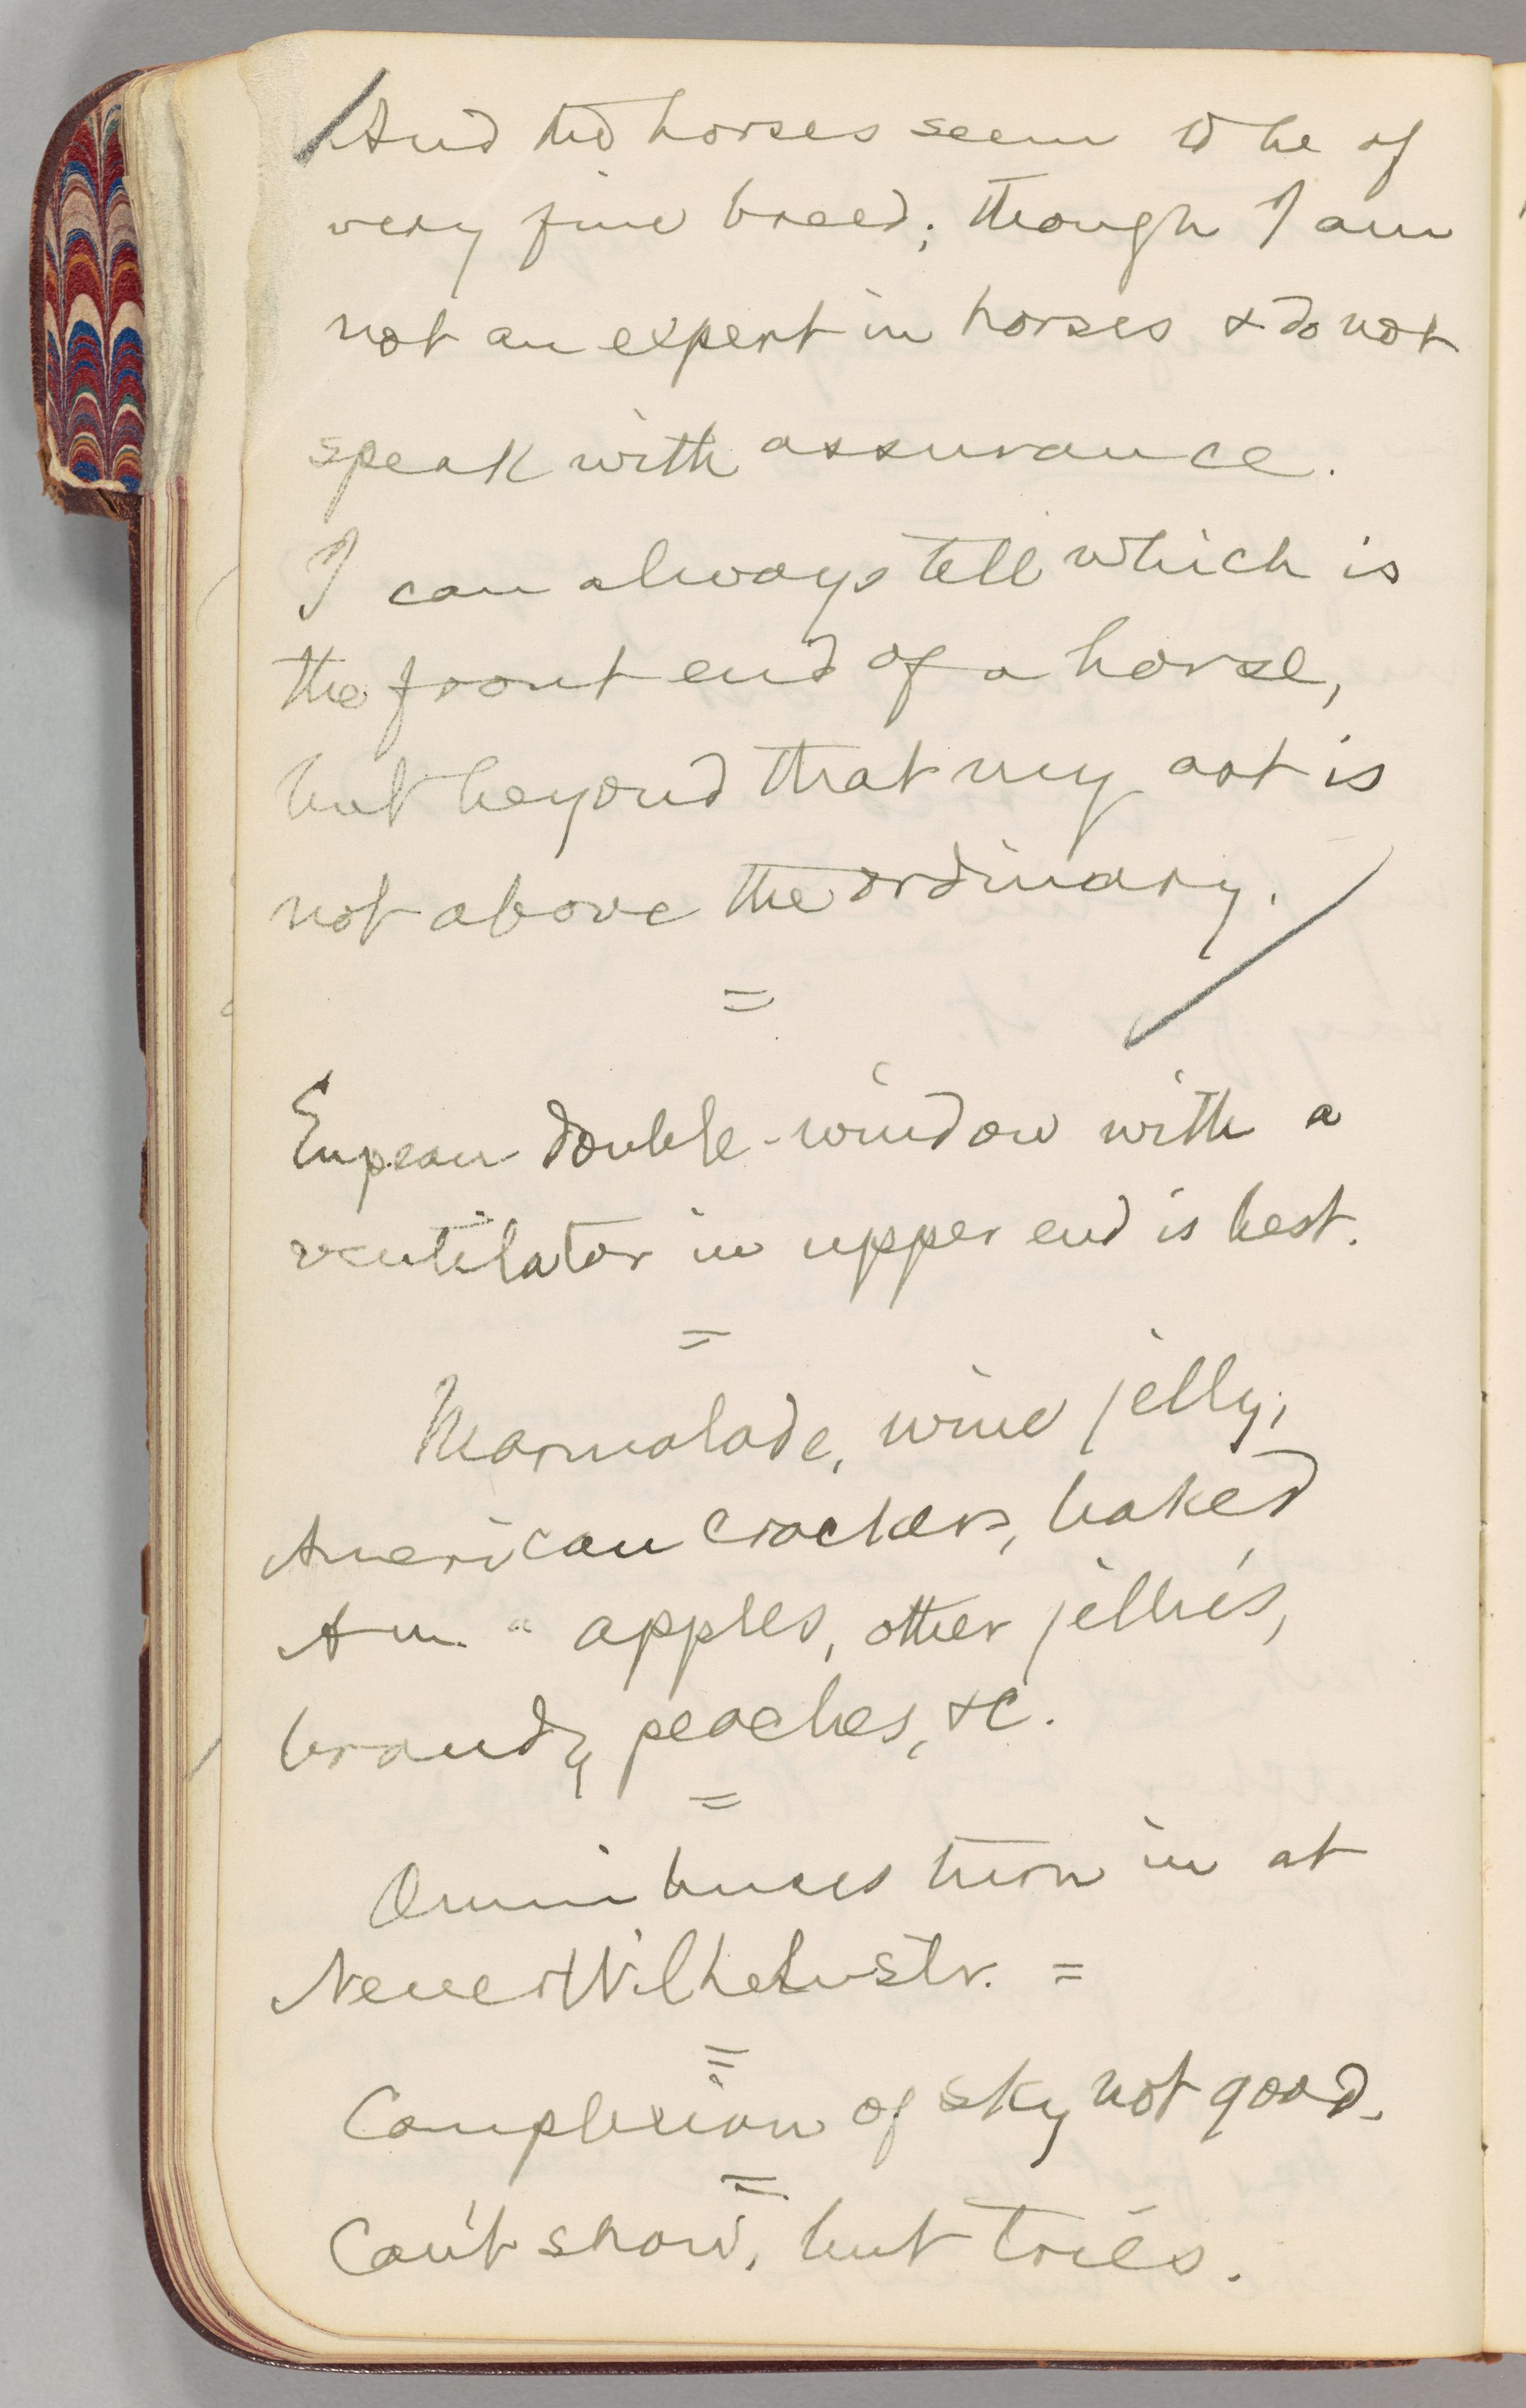 And the horses seem to be of
very fine breed; though I am
not an expert in horses & do not
speak with assurance.
I can always tell which is
the front end of a horse,
but beyond that my art is
not above the ordinary.
=
Eupean double-window with a
ventilator in upper end is best.
=
Marmalade, wine jelly,
American crackers, baked
Am. " apples, other jellies,
brandy peaches, &c.
=
Omnibuses turn in at
Neue Wilhelmstr. =
=
Complexion of sky not good.
=
Can't snow, but tries.